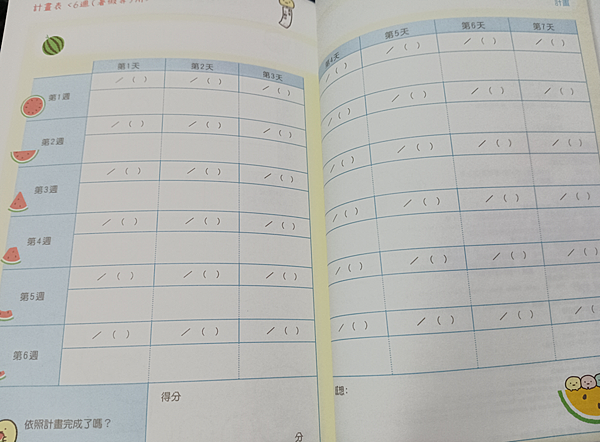 計畫表 <6週(暑假
計畫
第1天 第2天 第3天 第4天 第5天 第6天 第7天
第1週 /( ) /( ) /( ) /( ) /( ) /( ) /( )
第2週 /( ) /( ) /( ) /( ) /( ) /( ) /( )
第3週 /( ) /( ) /( ) /( ) /( ) /( ) /( )
第4週 /( ) /( ) /( ) /( ) /( ) /( ) /( )
第5週 /( ) /( ) /( ) /( ) /( ) /( ) /( )
第6週 /( ) /( ) /( ) /( ) /( ) /( ) /( )
依照計畫完成了嗎?
得分
分
想: